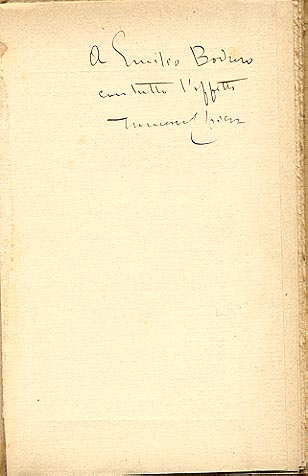 A Emilio Bodrero
con tutto l'affetto